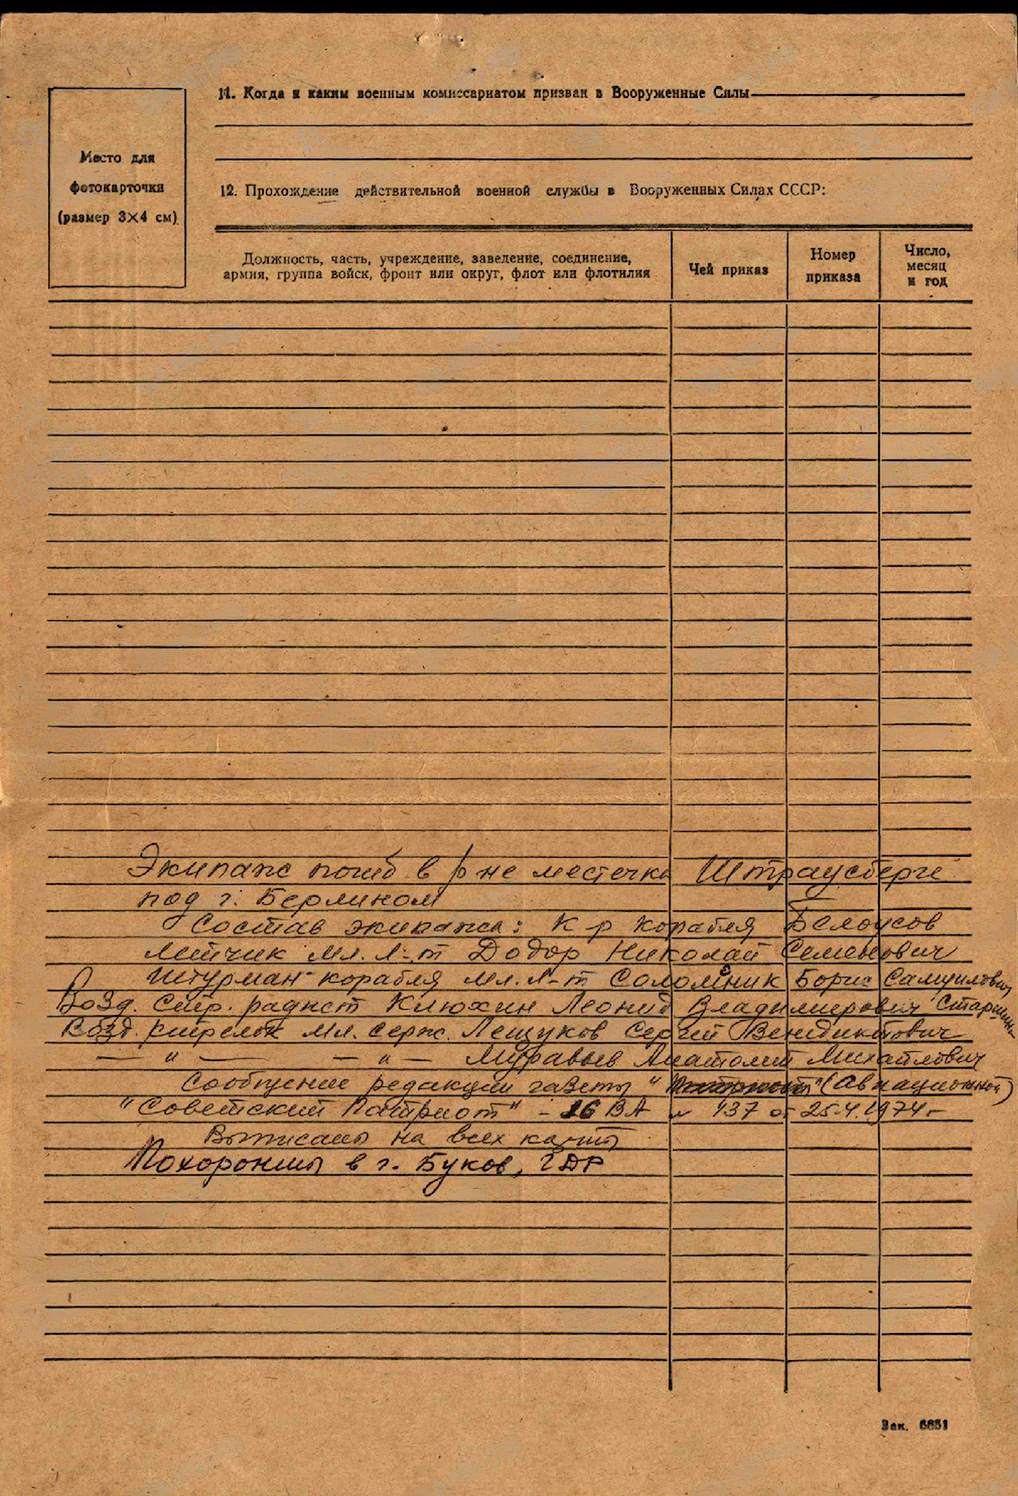 11. Когда и каким военным комиссариатом призван в Вооруженные Силы
Место для
фотокарточки
(размер 3×4 см)
12. Прохождение действительной военной службы в Вооруженных Силах СССР:
Должность, часть, учреждение, заведение, соединение,
армия, группа войск, фронт или округ, флот или флотилия
Чей приказ
Номер
приказа
Число,
месяц
и год
Экипаж погиб в р-не местечка Штраусберге
под г. Берлином
Состав экипажа: К-р корабля Белоусов
Летчик мл. л-т Додор Николай Семенович
Штурман корабля мл. л-т Соломник Борис Самуилович
Возд. стр. радист Клюхин Леонид Владимирович Старшина
Возд. стрелок мл. серж. Лещуков Сергей Венедиктович
— " — — " — Муравьев Анатолий Михайлович
Сообщение редакции газеты " " (авиационной)
"Советский Патриот" - 16 ВА № 137 от 25.4.1974-
Выписаны на всех карты
Похоронены в г. Буков, ГДР
Зак. 6851